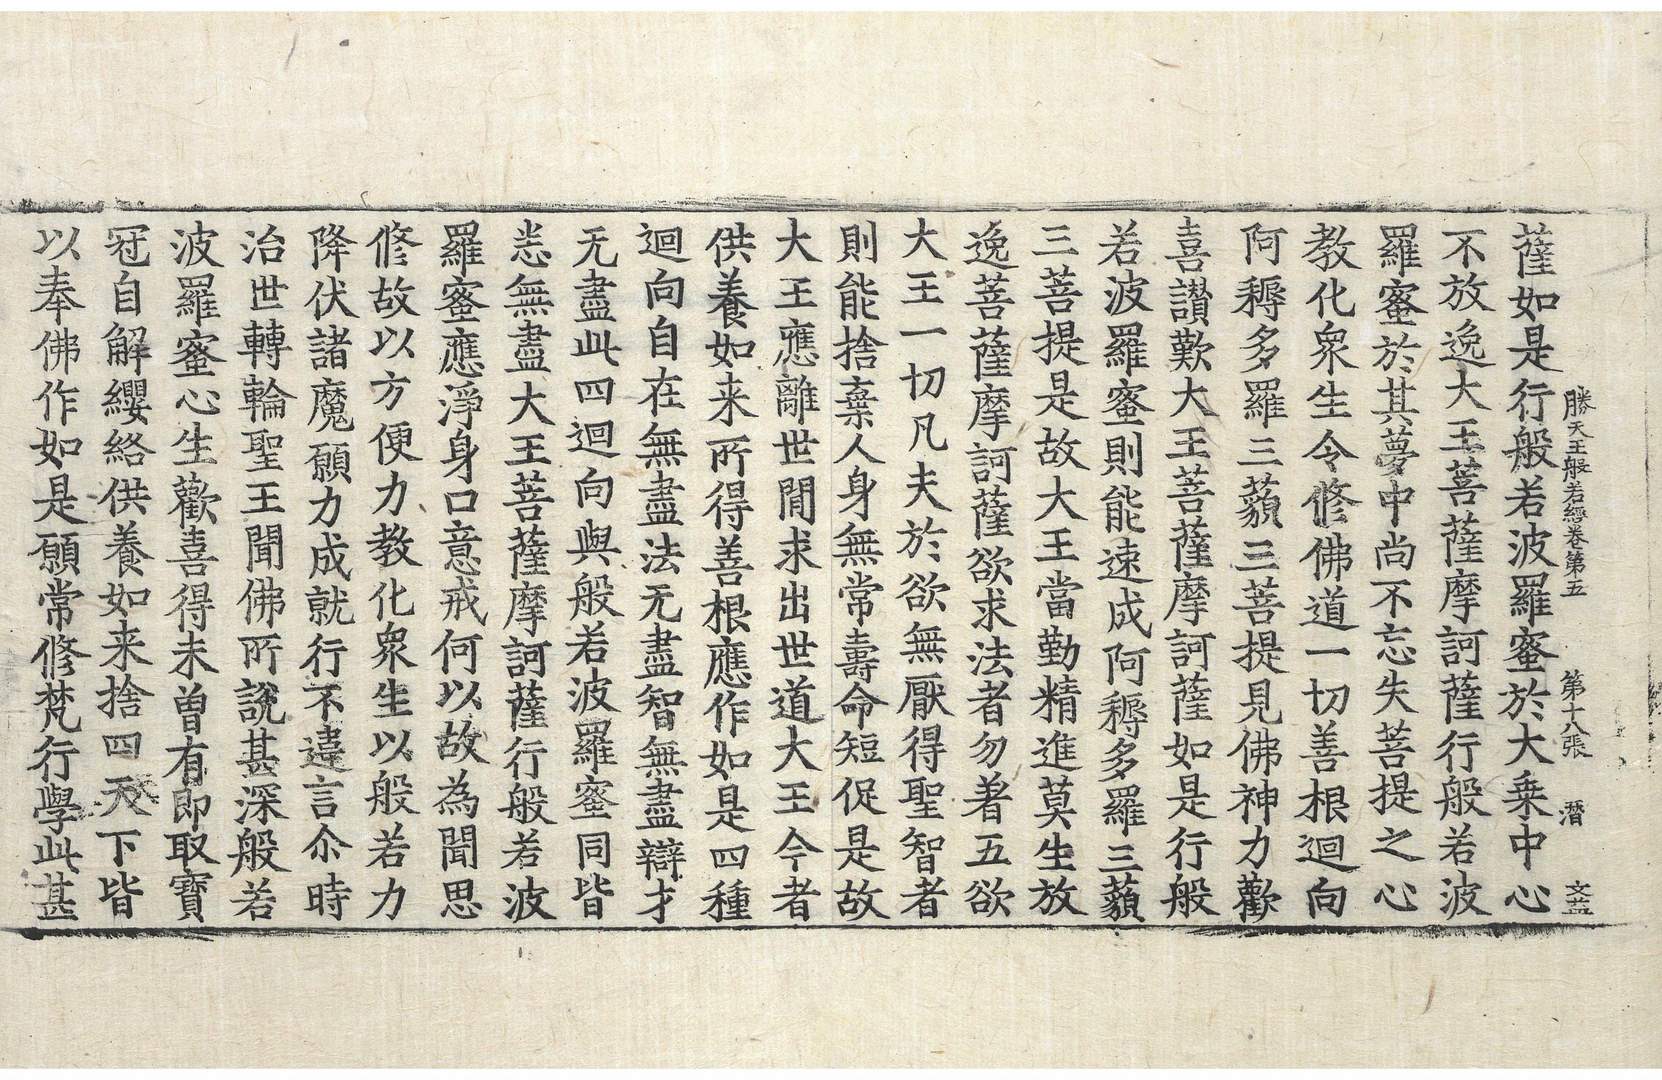 勝天王般若經卷第五　第十八張　潛　文益
薩如是行般若波羅蜜於大乗中心
不放逸大王菩薩摩訶薩行般若波
羅蜜於其夢中尚不忘失菩提之心
教化衆生令修佛道一切善根迴向
阿耨多羅三藐三菩提見佛神力歡
喜讃歎大王菩薩摩訶薩如是行般
若波羅蜜則能速成阿耨多羅三藐
三菩提是故大王當勤精進莫生放
逸菩薩摩訶薩欲求法者勿著五欲
大王一切凡夫於欲無厭得聖智者
則能捨棄人身無常壽命短促是故
大王應離世間求出世道大王今者
供養如来所得善根應作如是四種
迴向自在無盡法无盡智無盡辯才
无盡此四迴向與般若波羅蜜同皆
恙無盡大王菩薩摩訶薩行般若波
羅蜜應淨身口意戒何以故為聞思
修故以方便力教化衆生以般若力
降伏諸魔願力成就行不違言尒時
治世轉輪聖王聞佛所說甚深般若
波羅蜜心生歡喜得未曽有即取寶
冠自解纓絡供養如来捨四天下皆
以奉佛作如是願常修梵行學此甚